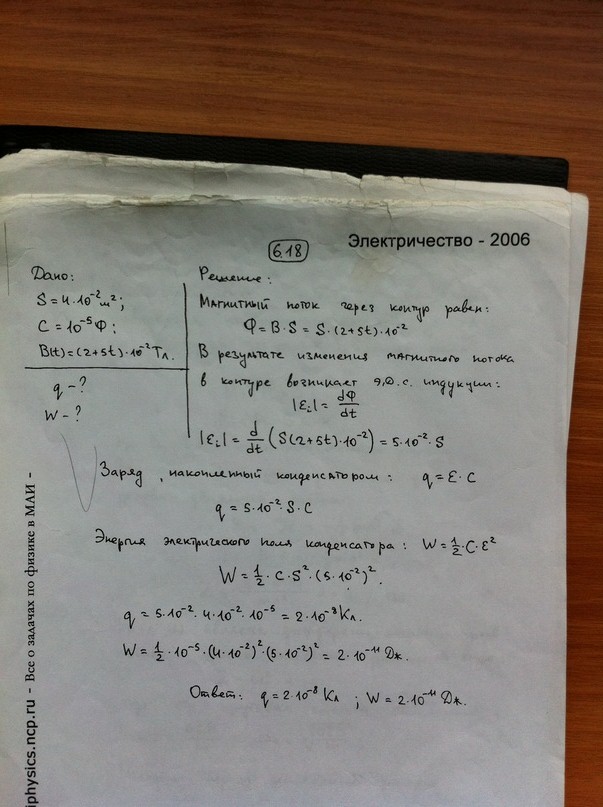 Электричество - 2006
6.18
Дано:
S = 4·10⁻² м²;
C = 10⁻⁵ Ф;
B(t) = (2+5t)·10⁻² Тл.
q - ?
W - ?
Решение:
Магнитный поток через контур равен:
Φ = B·S = S·(2+5t)·10⁻²
В результате изменения магнитного потока
в контуре возникает э.д.с. индукции:
|Ɛi| = dΦ/dt
|Ɛi| = d/dt (S(2+5t)·10⁻²) = 5·10⁻²·S
Заряд, накопленный конденсатором: q = Ɛ·C
q = 5·10⁻²·S·C
Энергия электрического поля конденсатора: W = 1/2·C·Ɛ²
W = 1/2·C·S²·(5·10⁻²)².
q = 5·10⁻²·4·10⁻²·10⁻⁵ = 2·10⁻⁸ Кл.
W = 1/2·10⁻⁵·(4·10⁻²)²·(5·10⁻²)² = 2·10⁻¹¹ Дж.
Ответ: q = 2·10⁻⁸ Кл; W = 2·10⁻¹¹ Дж.
iphysics.ncp.ru - Все о задачах по физике в МАИ -